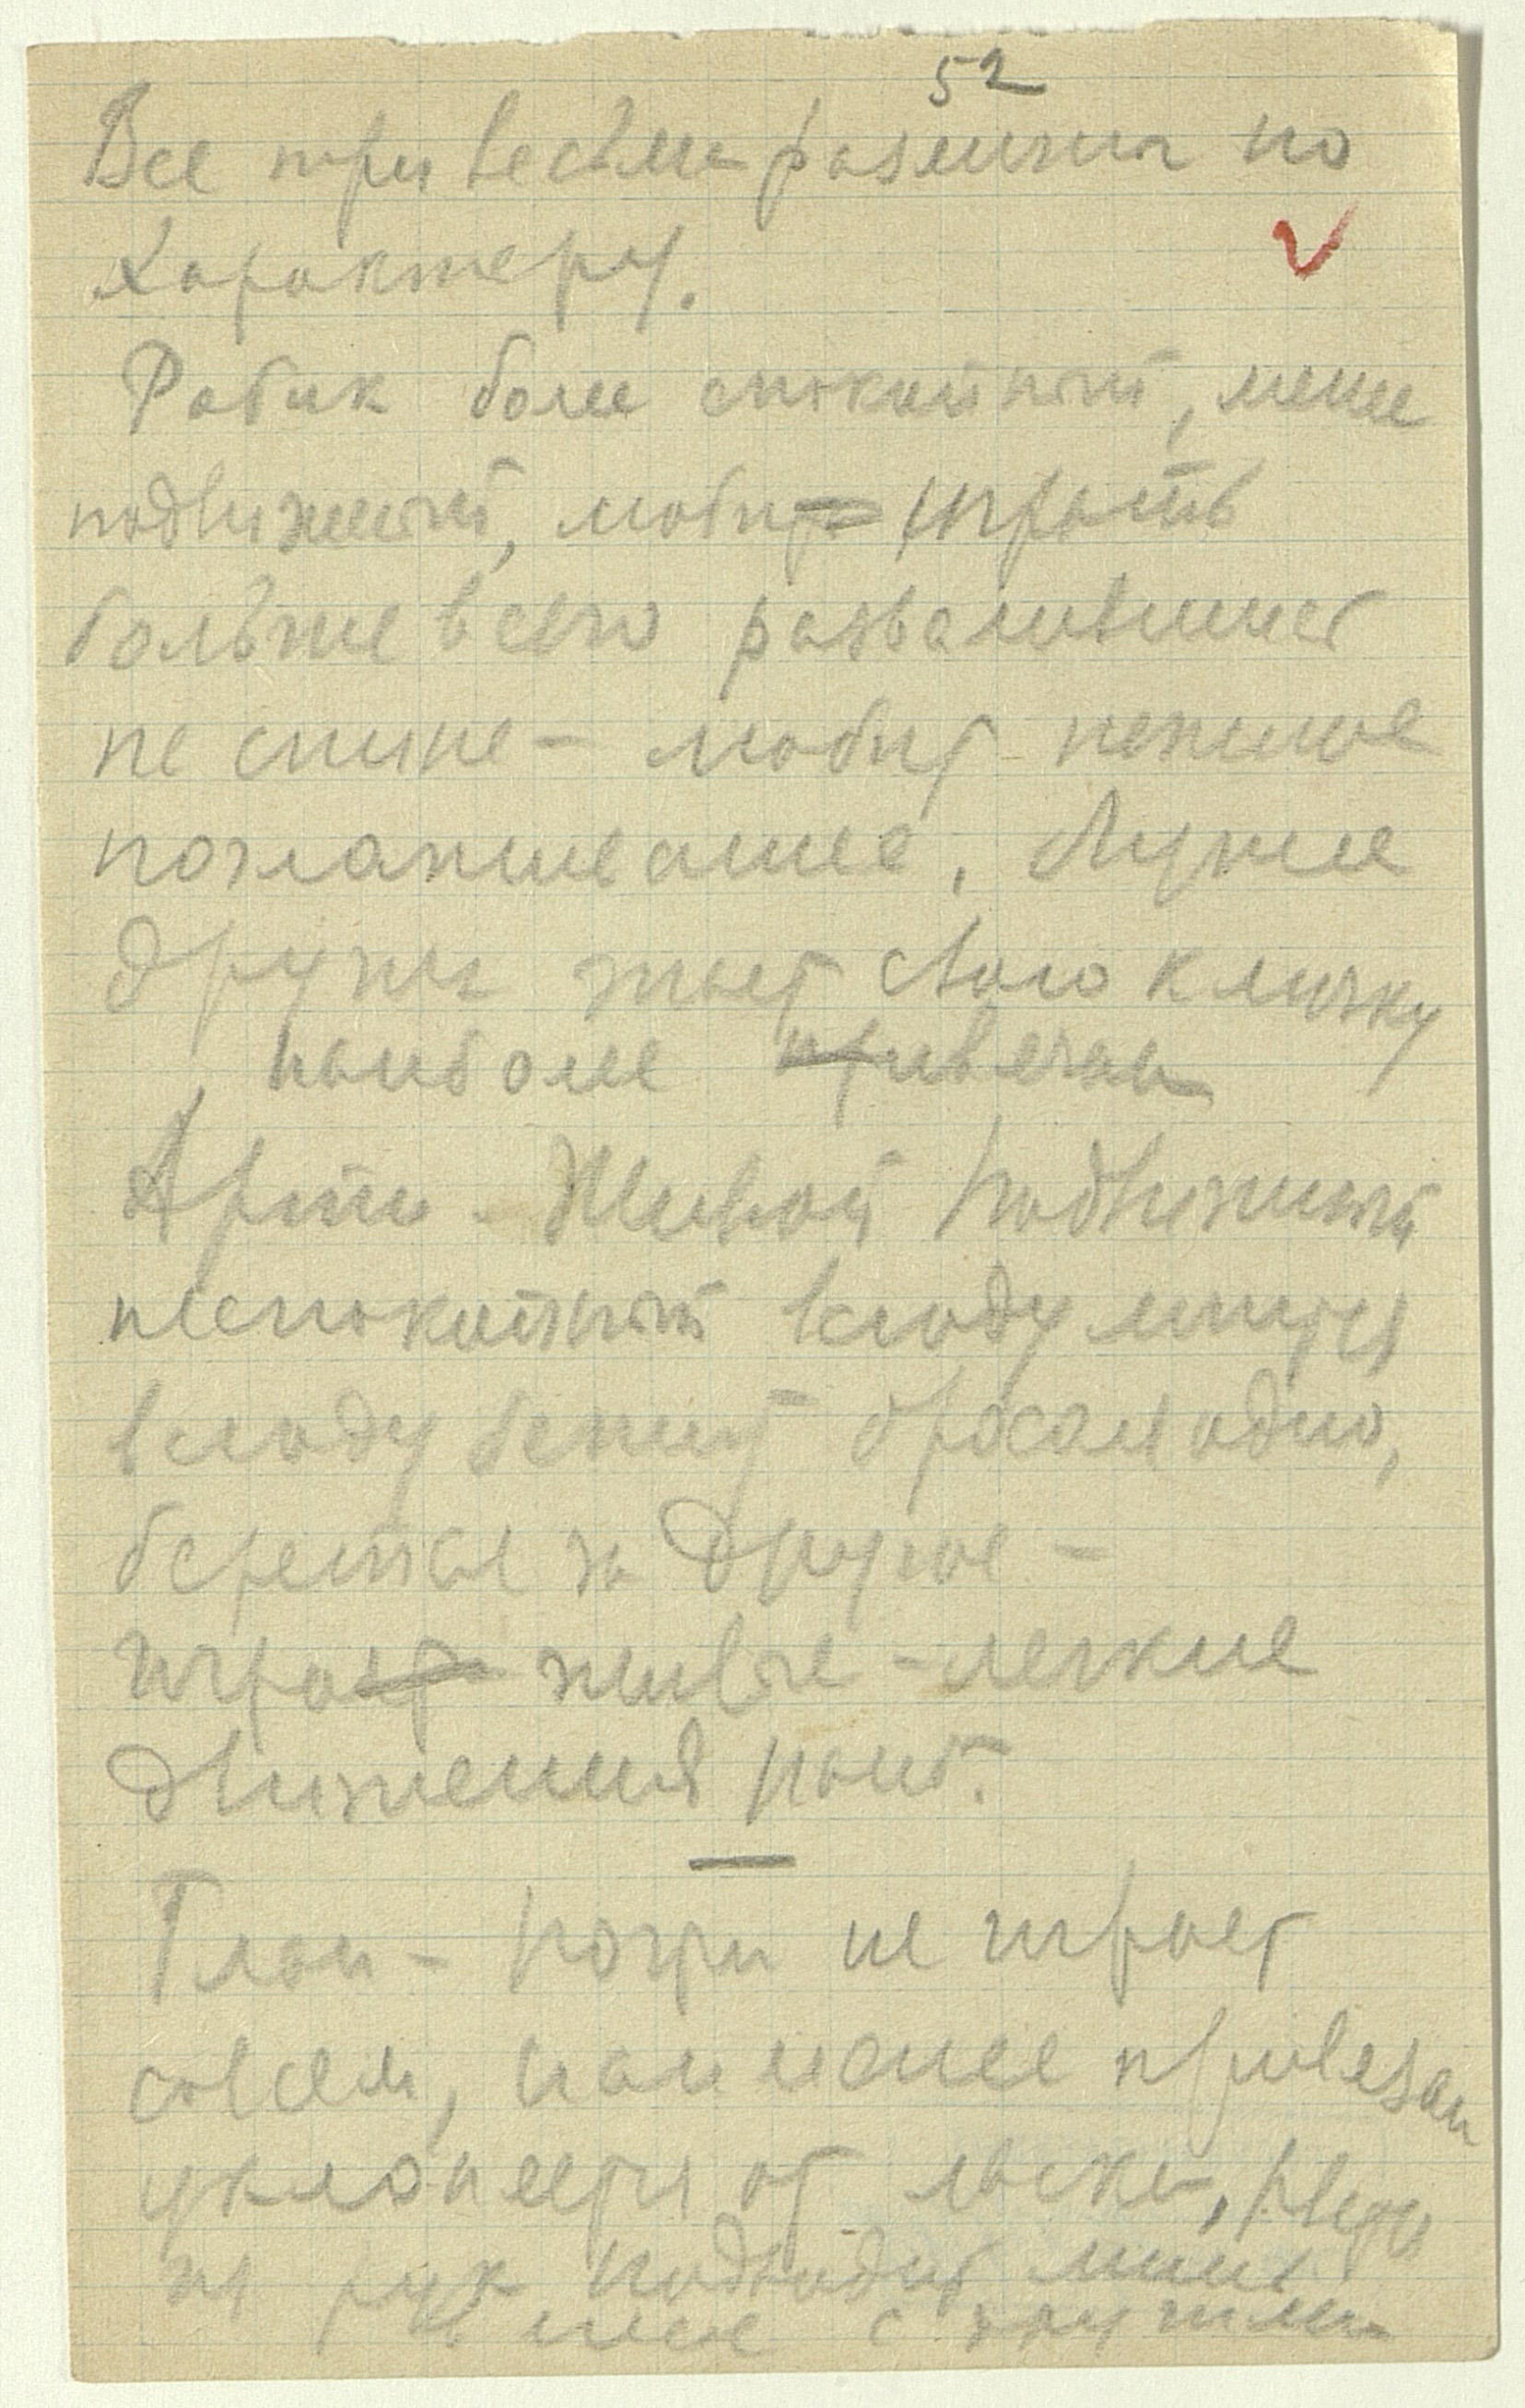 52
Все три весьма различны по
характеру.
Робик более спокойный, менее
подвижный, любит играть
больше всего развалившись
на спине – любит нежное
поглаживание. Лучше
других знает свою кличку
наиболее привязан
Арти. Живой подвижный
неспокойный всюду
всюду бежит бросая одно,
берется за другое –
играет живее – легкие
движения
Глан – почти не играет
совсем, наименее привязан
уклоняется от ласки, рвется
из рук подходит лишь
вместе с другими